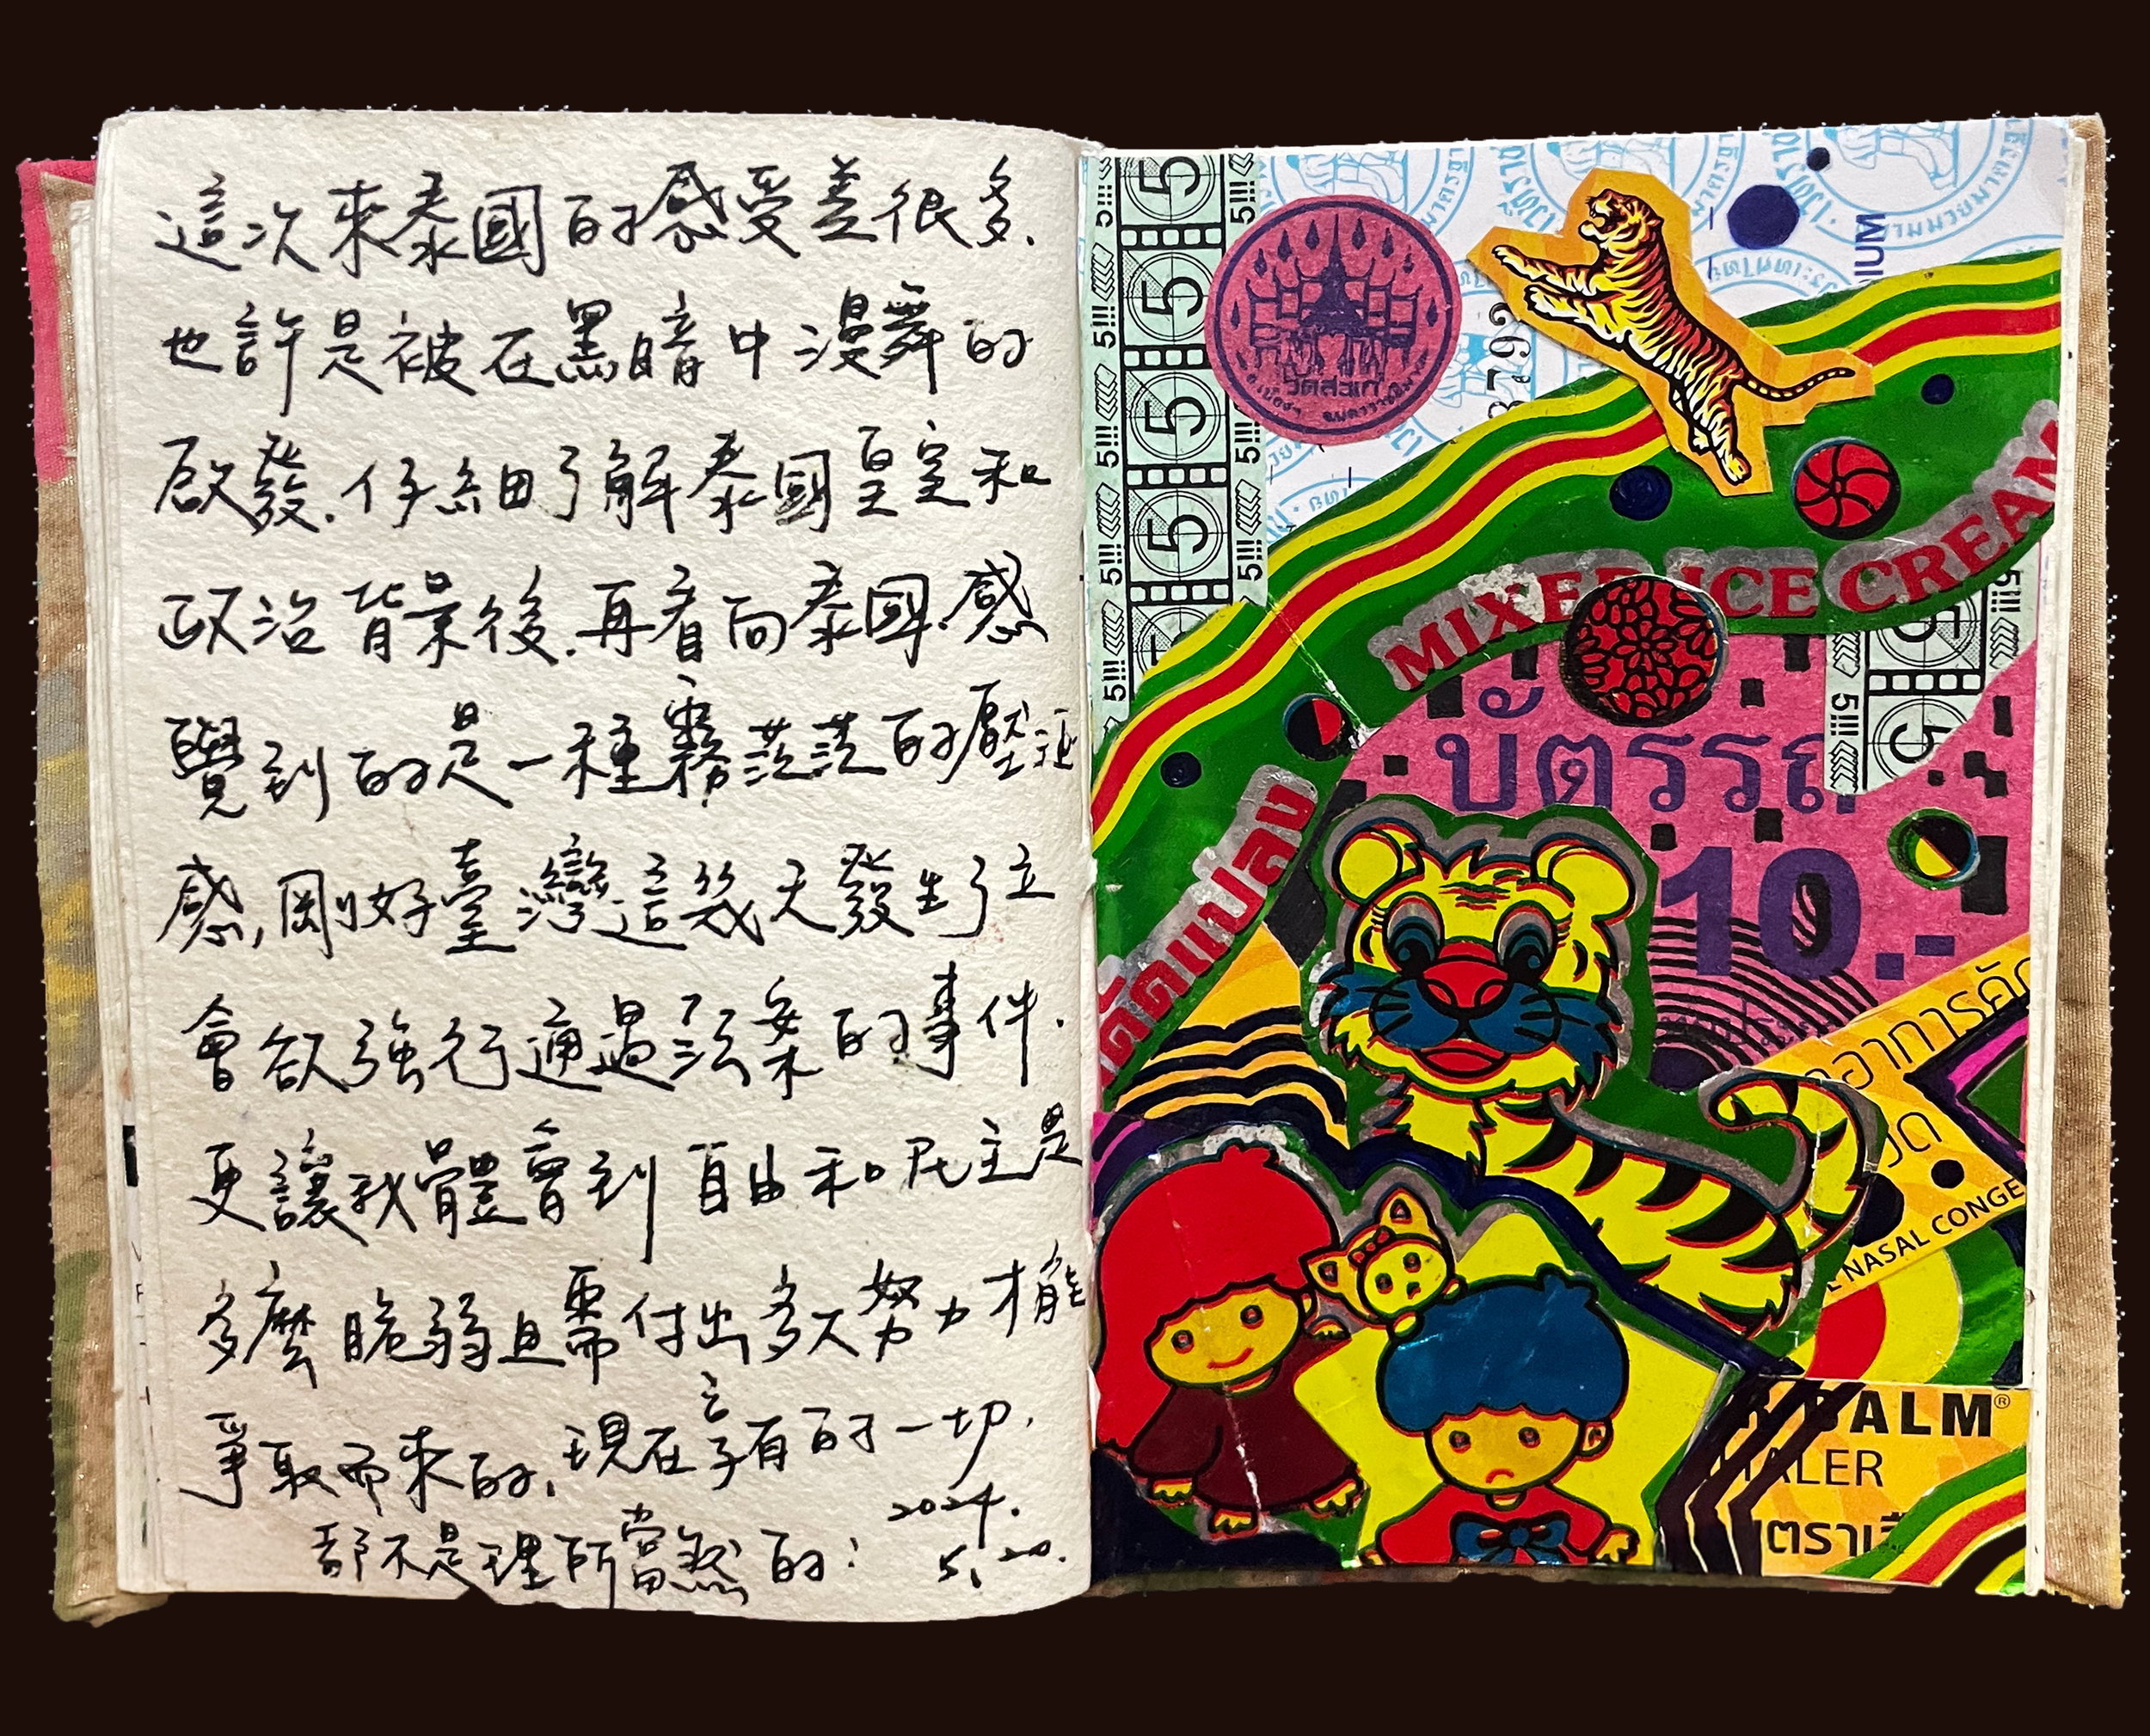 這次來泰國的感受差很多.
也許是被在黑暗中漫舞的
啟發.仔細了解泰國皇室和
政治背景後.再看向泰國.感
覺到的是一種霧茫茫的壓迫
感,剛好臺灣這幾天發生了立
會欲強行通過法案的事件.
更讓我體會到自由和民主是
多麼脆弱且需付出多大努力才能
爭取而來的,現在享有的一切.
都不是理所當然的:
2024.
5.20.
5!!! 5 5!!!
5!!! 5 5!!!
5!!! 5 5!!!
5!!! 5 5!!!
5!!!
วัดสระเกศ
8793
MIXED ICE CREAM
บัตรรถ
10.-
ดัดแปลง
อาการคัด
NASAL CONGE
BALM®
HALER
ตราเสื